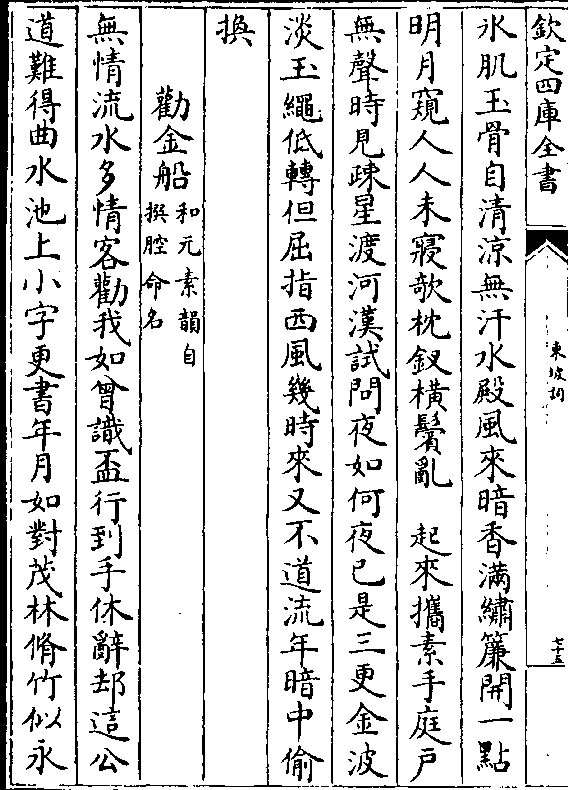 欽定四庫全書
東坡詞
七十五
氷肌玉骨自清涼無汗水殿風來暗香滿繡簾開一點
明月窺人人未寢欹枕釵橫鬢亂　起來攜素手庭戸
無聲時見疎星渡河漢試問夜如何夜已是三更金波
淡玉繩低轉但屈指西風幾時來又不道流年暗中偷
換
勸金船和元素韻自
撰腔命名
無情流水多情客勸我如曾識盃行到手休辭却這公
道難得曲水池上小字更書年月如對茂林脩竹似永